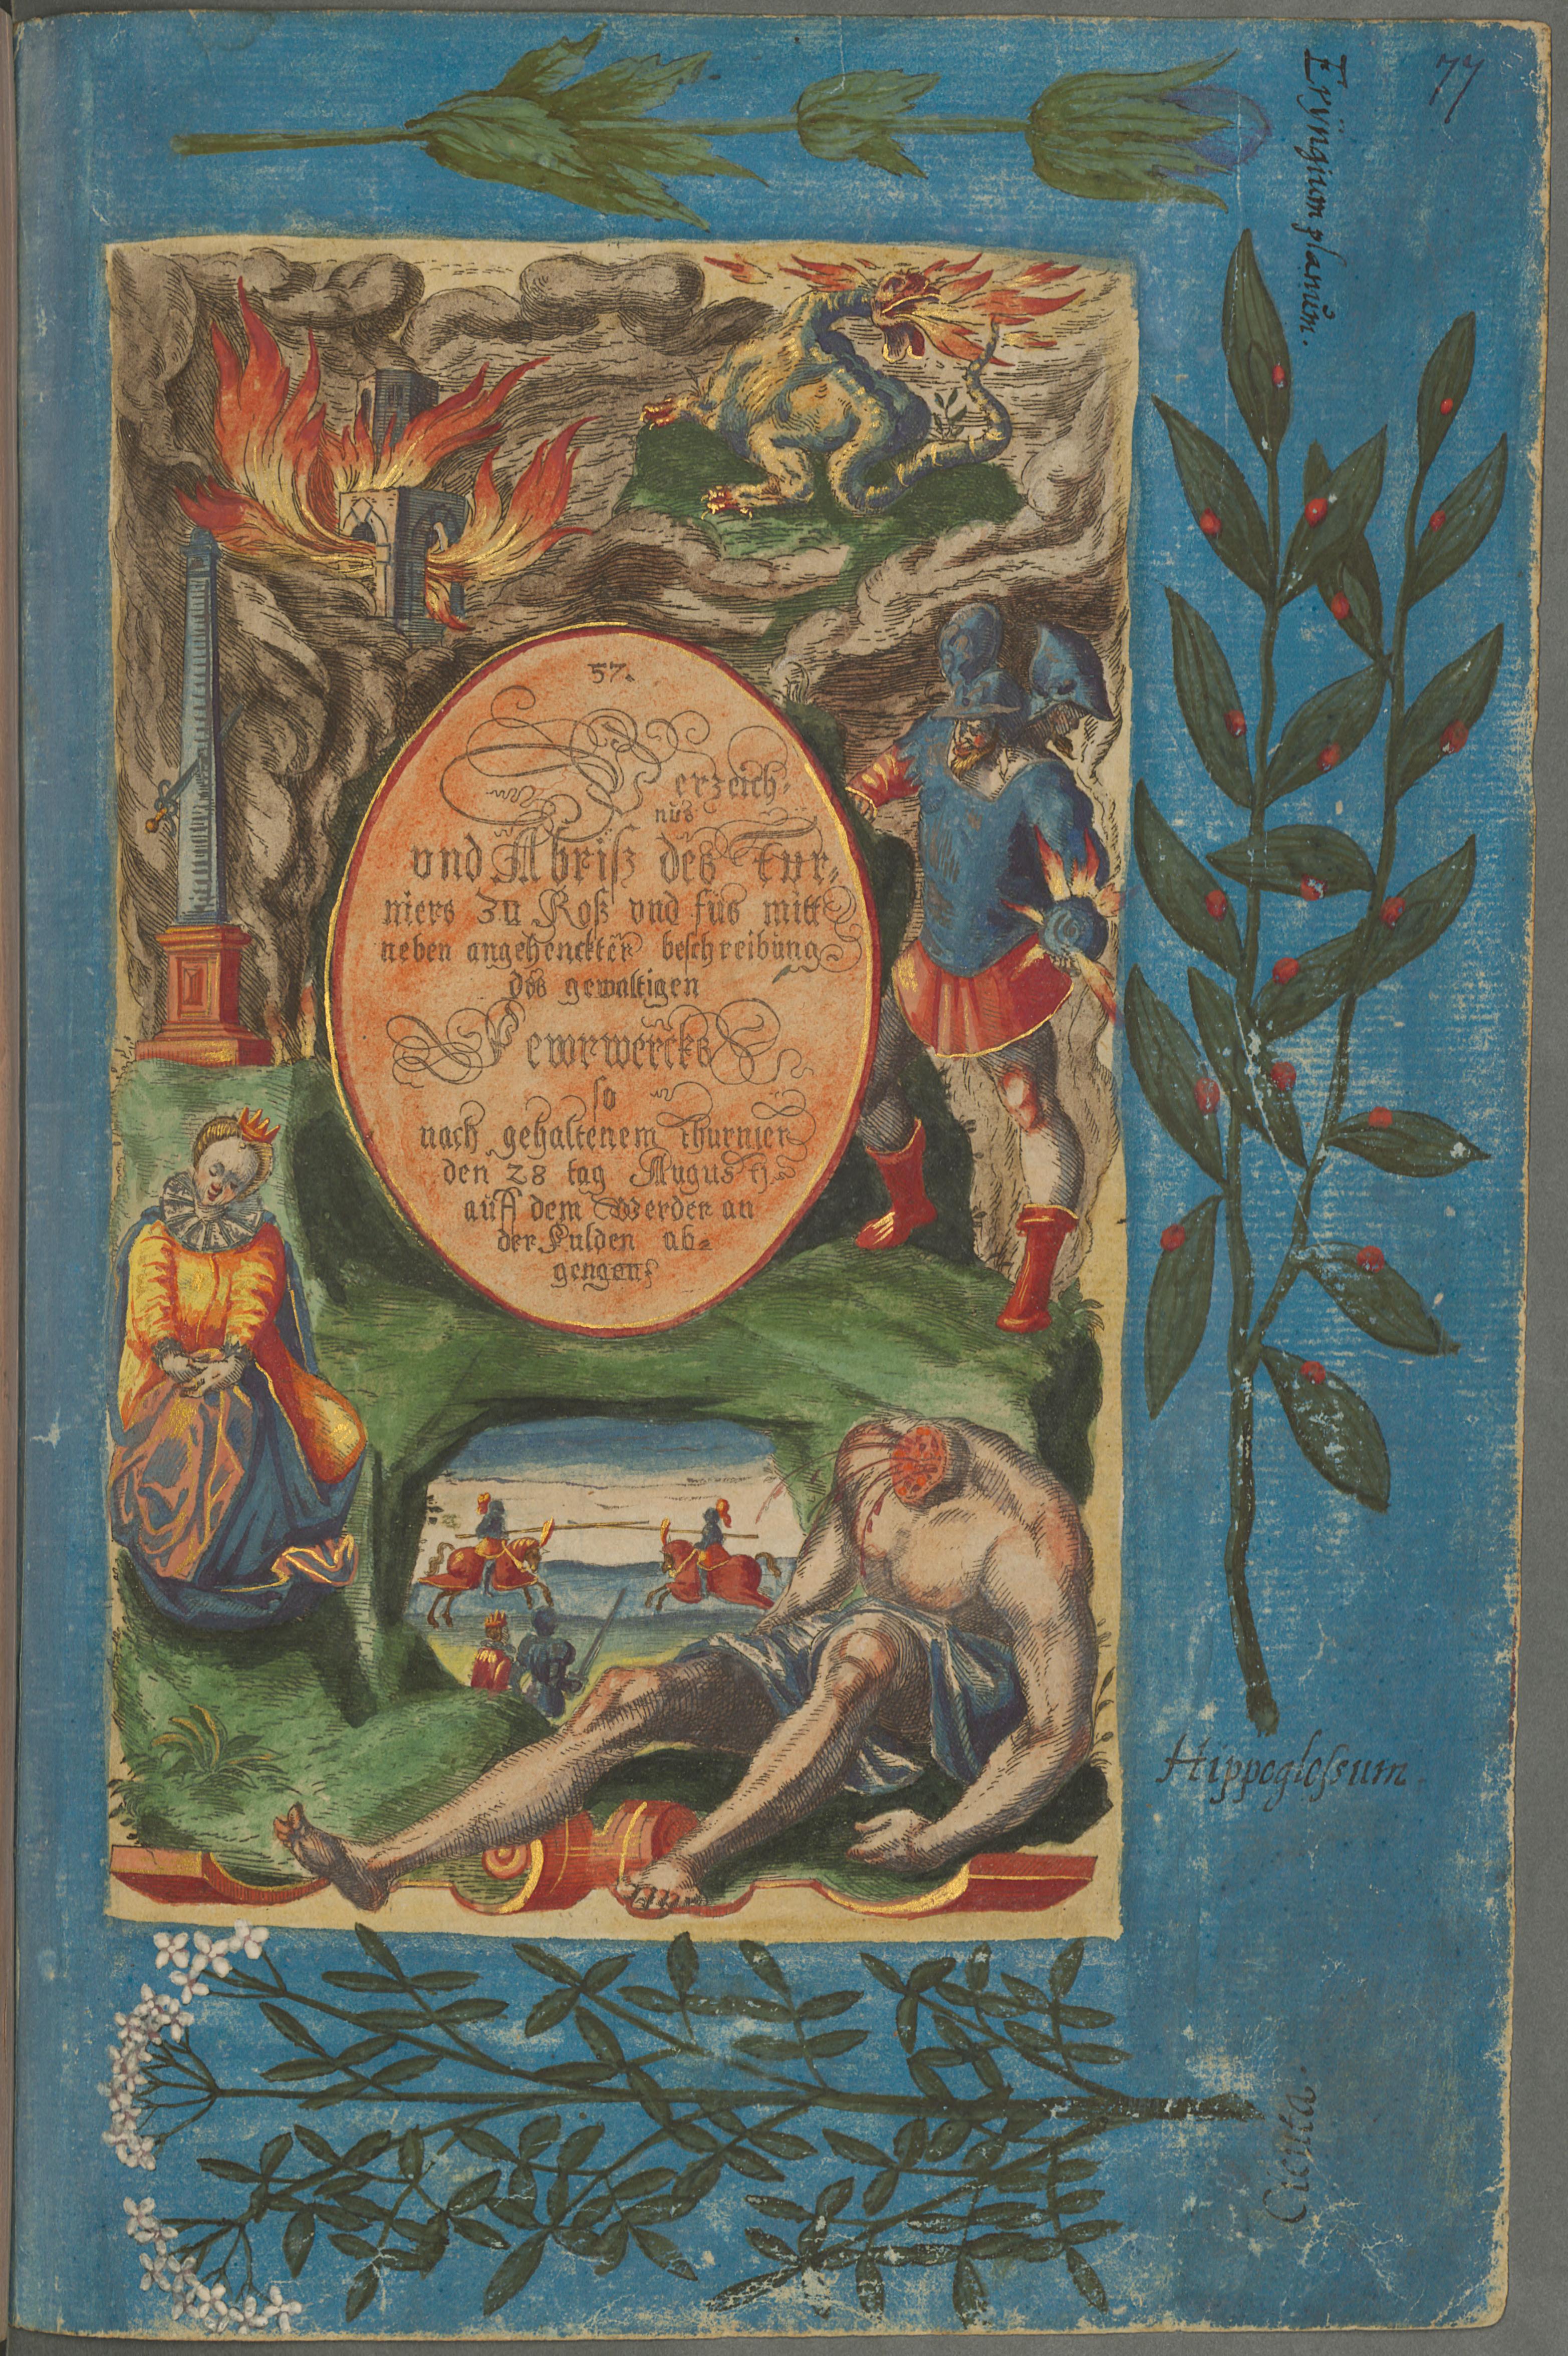 77
Eryngium planum.
57.
Verzeich-
nüs
vnd Abriß des Tur,
niers zu Roß vnd füs mitt
neben angehenckter beschreibung
des gewaltigen
Fewrwercks
so
nach gehaltenem thurnier
den 28 tag Augusti
auff dem Werder an
der Fulden ab-
gengen
Hippoglossum.
Cicuta.